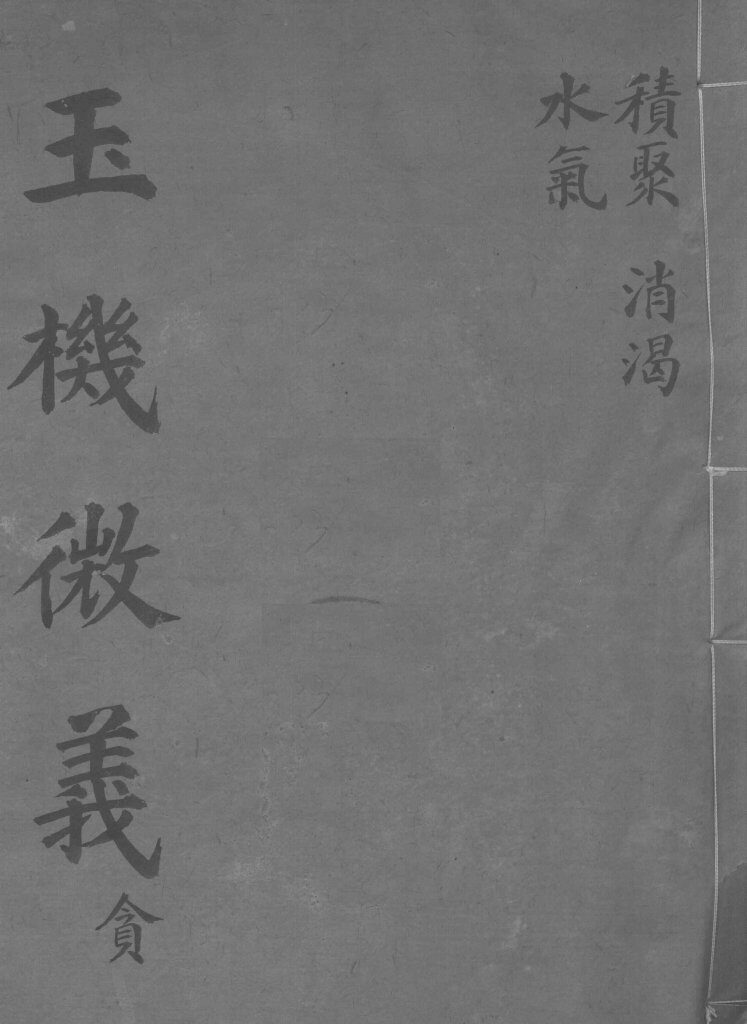 積聚 消渴
水氣
玉機微義 貪